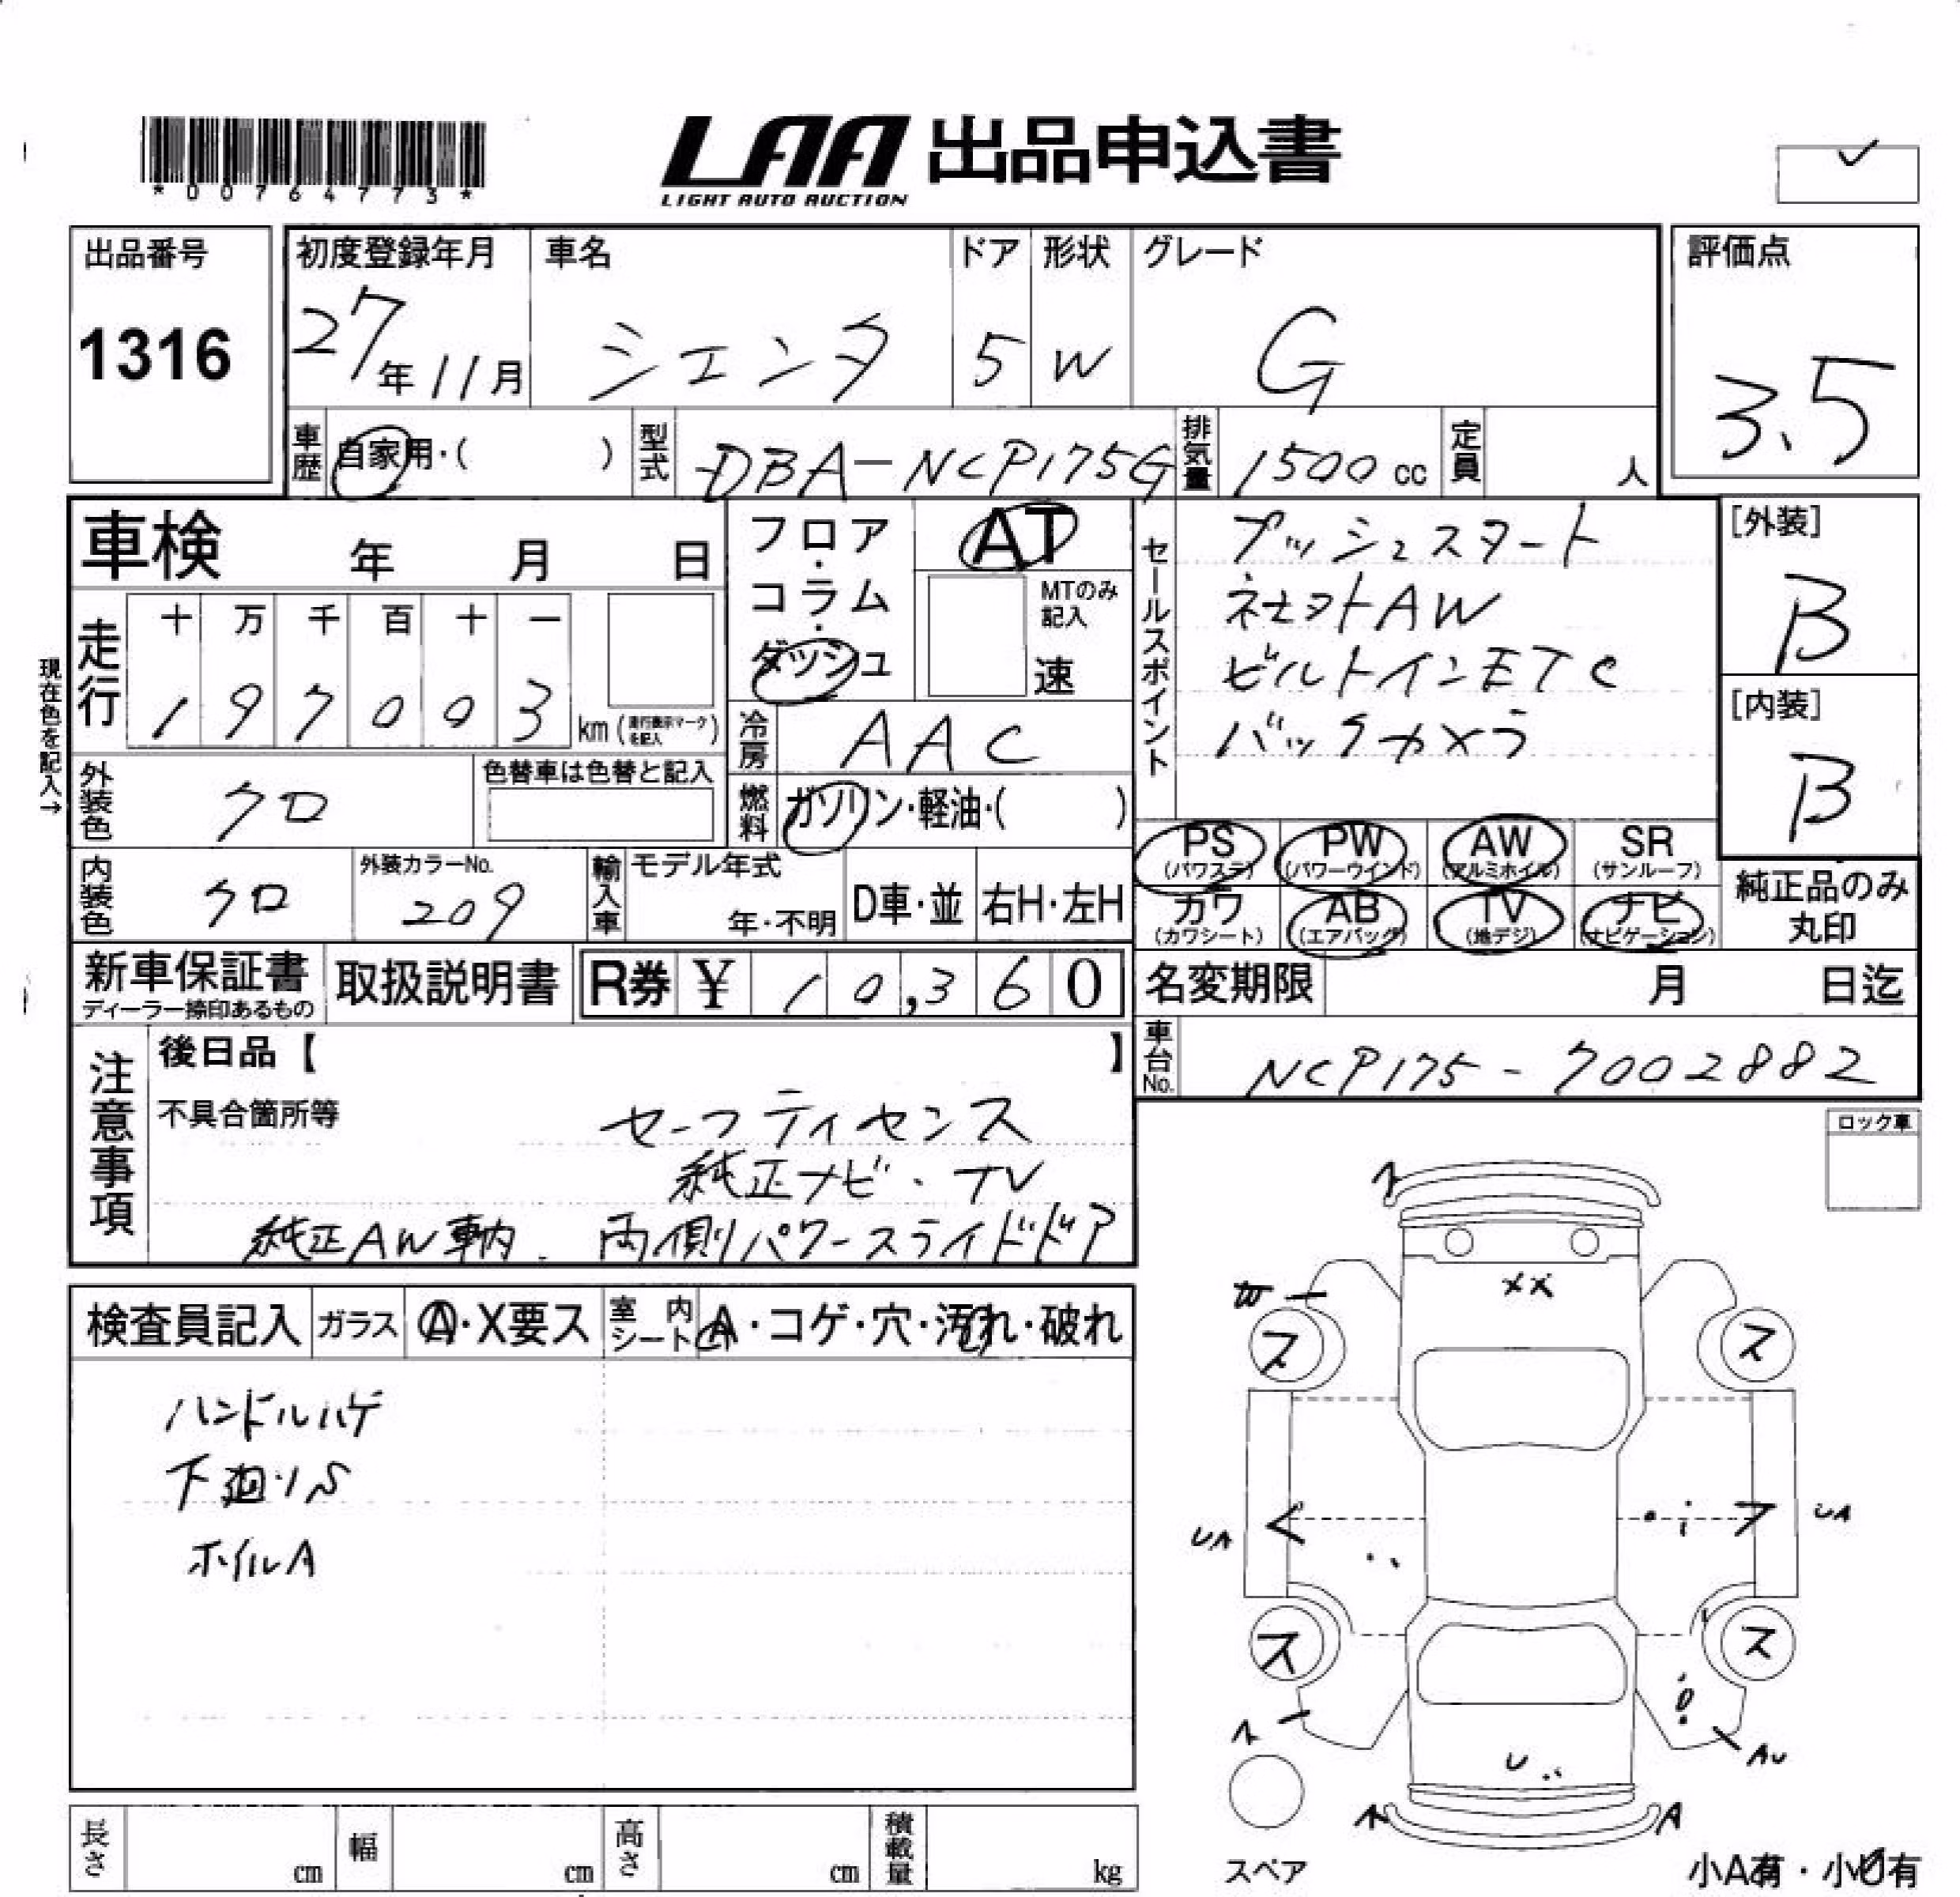 *00764773*
LAA 出品申込書
LIGHT AUTO AUCTION
出品番号
1316
初度登録年月
27年11月
車名
シエンタ
ドア
5
形状
W
グレード
G
評価点
3.5
車歴
自家用・( )
型式
DBA-NCP175G
排気量
1500cc
定員
人
車検 年 月 日
フロア・コラム・ダッシュ
AT
MTのみ記入
速
セールスポイント
プッシュスタート
社外AW
ビルトインETC
バックカメラ
[外装]
B
[内装]
B
現在色を記入→
走行
十 万 千 百 十 一
1 9 7 0 0 3 km (走行表示マークを記入)
冷房
AAC
外装色
クロ
色替車は色替と記入
燃料
ガソリン・軽油・( )
内装色
クロ
外装カラーNo.
209
輸入車
モデル年式
年・不明
D車・並
右H・左H
PS (パワステ)
PW (パワーウインド)
AW (アルミホイル)
SR (サンルーフ)
カワ (カワシート)
AB (エアバッグ)
TV (地デジ)
ナビ (ナビゲーション)
純正品のみ丸印
新車保証書
ディーラー捺印あるもの
取扱説明書
R券 ¥ 10,360
名変期限 月 日迄
車台No.
NCP175-7002882
注意事項
後日品【 】
不具合箇所等
セーフティセンス
純正ナビ・TV
純正AW車内 両側パワースライドドア
ロック車
検査員記入
ガラス
A・X要ス
室内シート
A・コゲ・穴・汚れ・破れ
ハンドルハゲ
下廻りS
ホイルA
A
XX
ス
ス
UA
UA
ス
ス
A
AU
U
A
A
スペア
小A有・小U有
長さ cm
幅 cm
高さ cm
積載量 kg